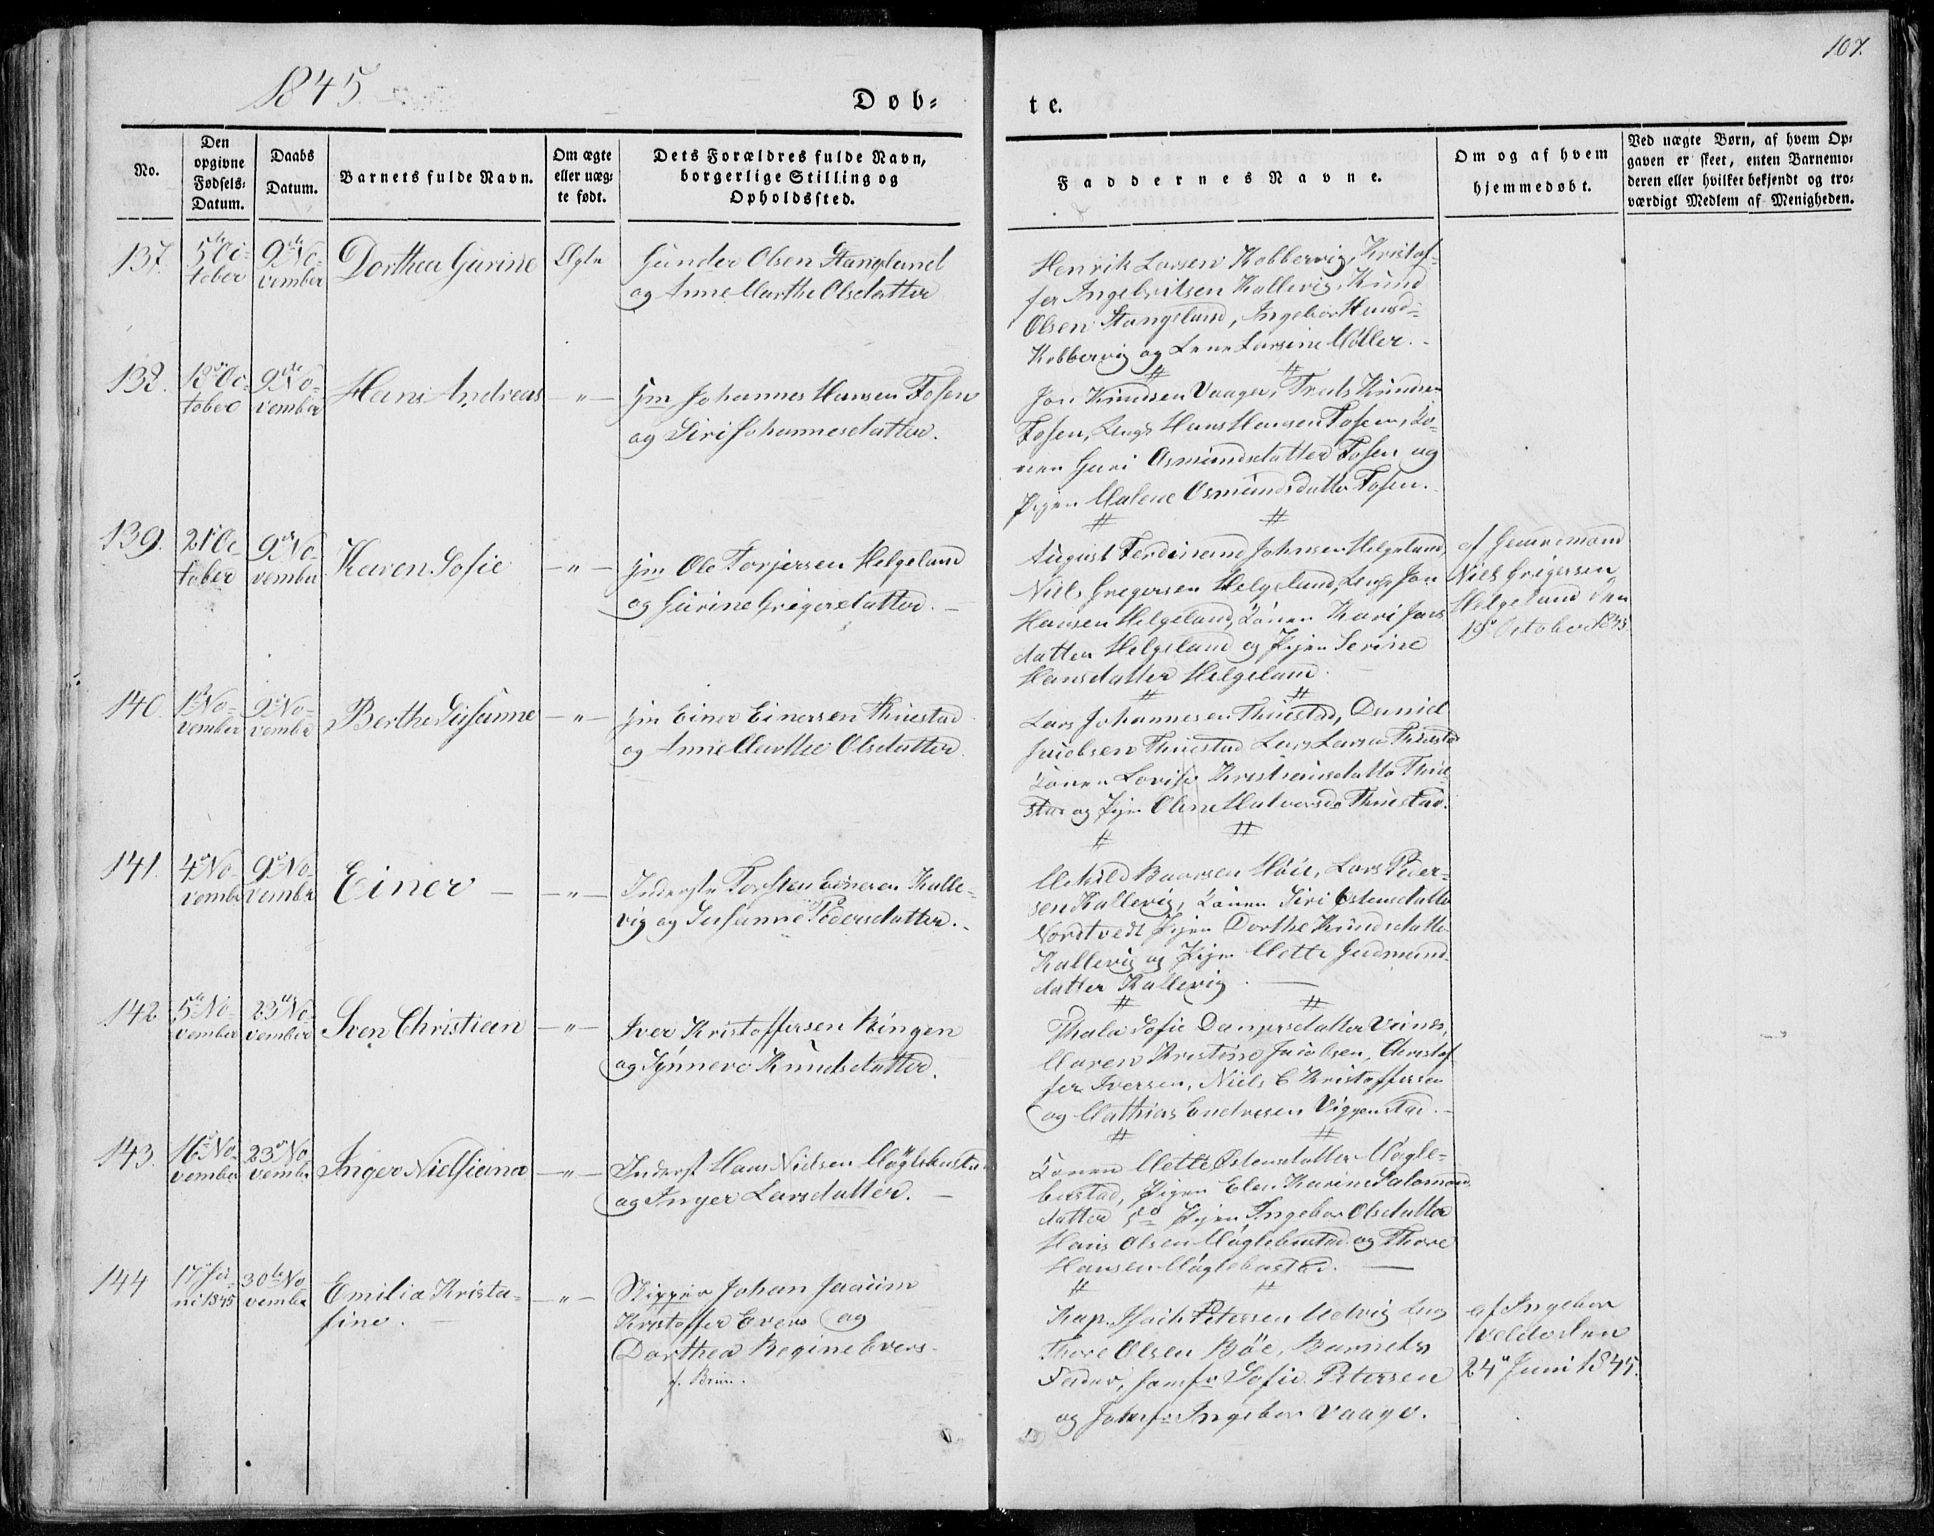 1845
107.
Døb-
te.
No.
Den
opgivne
Fødsels-
Datum.
Daabs
Datum.
Barnets fulde Navn.
Om ægte
eller uæg-
te født.
Dets Forældres fulde Navn,
borgerlige Stilling og
Opholdssted.
Faddernes Navne.
Om og af hvem
hjemmedøbt.
Ved uægte Børn, af hvem Op-
gaven er skeet, enten Barnemo-
deren eller hvilket bekjendt og tro-
værdigt Medlem af Menigheden.
137.
5te Oc-
tober
9de No-
vember
Dorthea Gurine
Ægte
Gunder Olsen Stangeland
og Anne Marthe Olsdatter
Henrik Larsen Kobbervig, Kristof-
fer Ingebritsen Kallevig, Knud
Olsen Stangeland, Ingebor Hansd-
Kobbervig og Lene Larsine Møller.
138.
12 Oc-
tober
9de No-
vember
Hans Andreas
— " —
Gm Johannes Hansen Fosen
og Siri Johannesdatter.
Jon Knudsen Vaage, Knudsen
Fosen, Hans Hansen Fosen, Ko-
nen Guri Osmundsdatter Fosen og
Pigen Malene Osmundsdatter Fosen.
139.
21 Oc-
tober
9de No-
vember
Karen Sofie
— " —
Gm Ole Torjersen Helgeland
og Gurine Grigersdatter.
August Ferdinand Johnsen Helgeland,
Niels Gregersen Helgeland, Jon
Hansen Helgeland, Konen Kari Jons
datter Helgeland og Pigen Serine
Hansdatter Helgeland.
af Gaardmand
Niels Grigersen
Helgeland den
October 1845.
140.
1 No-
vember
9 No-
vember
Berthe Susanne
— " —
Gm Einer Einersen Thuestad
og Anne Marthe Olsdatter.
Lars Johannesen Thuestad, Daniel
Jacobsen Thuestad Lars Larsen Thuestad
Konen Lovise Kristiansdatter Thue-
stad og Pigen Oline Halvorsd Thuestad.
141.
4 No-
vember
9 No-
vember
Einer
— " —
Inderste Torsten Einersen Kalle-
vig og Susanne Pedersdatter.
Baarsen Høie, Lars Peder-
sen Kallevig, Konen Siri Østensdatter
Nordtvedt Pigen Dorthe Knudsdatter
Kallevig og Pigen Mette Gudmund-
datter Kallevig.
142
5te No-
vember
23de No-
vember
Sven Christian
— " —
Iver Kristoffersen Ringen
og Synneve Knudsdatter.
Thala Sofie
Maren Kristine Jacobsen, Christof
fer Iversen, Niels C Kristoffersen
og Mathias Endresen Viggenstad.
143.
16 No-
vember
23 No-
vember
Inger Nielsiana
— " —
Inderst Hans Nielsen Møglebustad
og Inger Larsdatter.
Konen Mette Østensdatter Møgle-
bustad, Pigen Elen Karine Salomons
datter Pigen Ingebor Olsdatter
Hans Olsen Møglebustad og Thore
Hansen Møglebustad.
144
17 Ju-
ni 1845
30te No
vember
Emilia Krista-
fine.
— " —
Skipper Johan Joacim
Kristoffer Evers og
Dorthea Regine Evers
f. Brun.
Kap. Petersen Udvig
Thore Olsen Bøe, Barnets
Fader, Jomfr Sofie Petersen
og Jomfr Ingebor Vaage.
af Ingebor
24 Juni 1845.